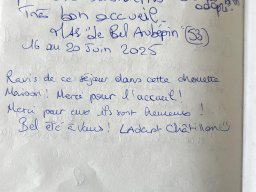 adopté!
Très bon accueil.
MAS "Le Bel Aubépin" (53)
16 au 20 Juin 2025
Ravis de ce séjour dans cette chouette
Maison! Merci pour l'accueil!
Merci pour eux ils sont heureux!
Bel été à vous!